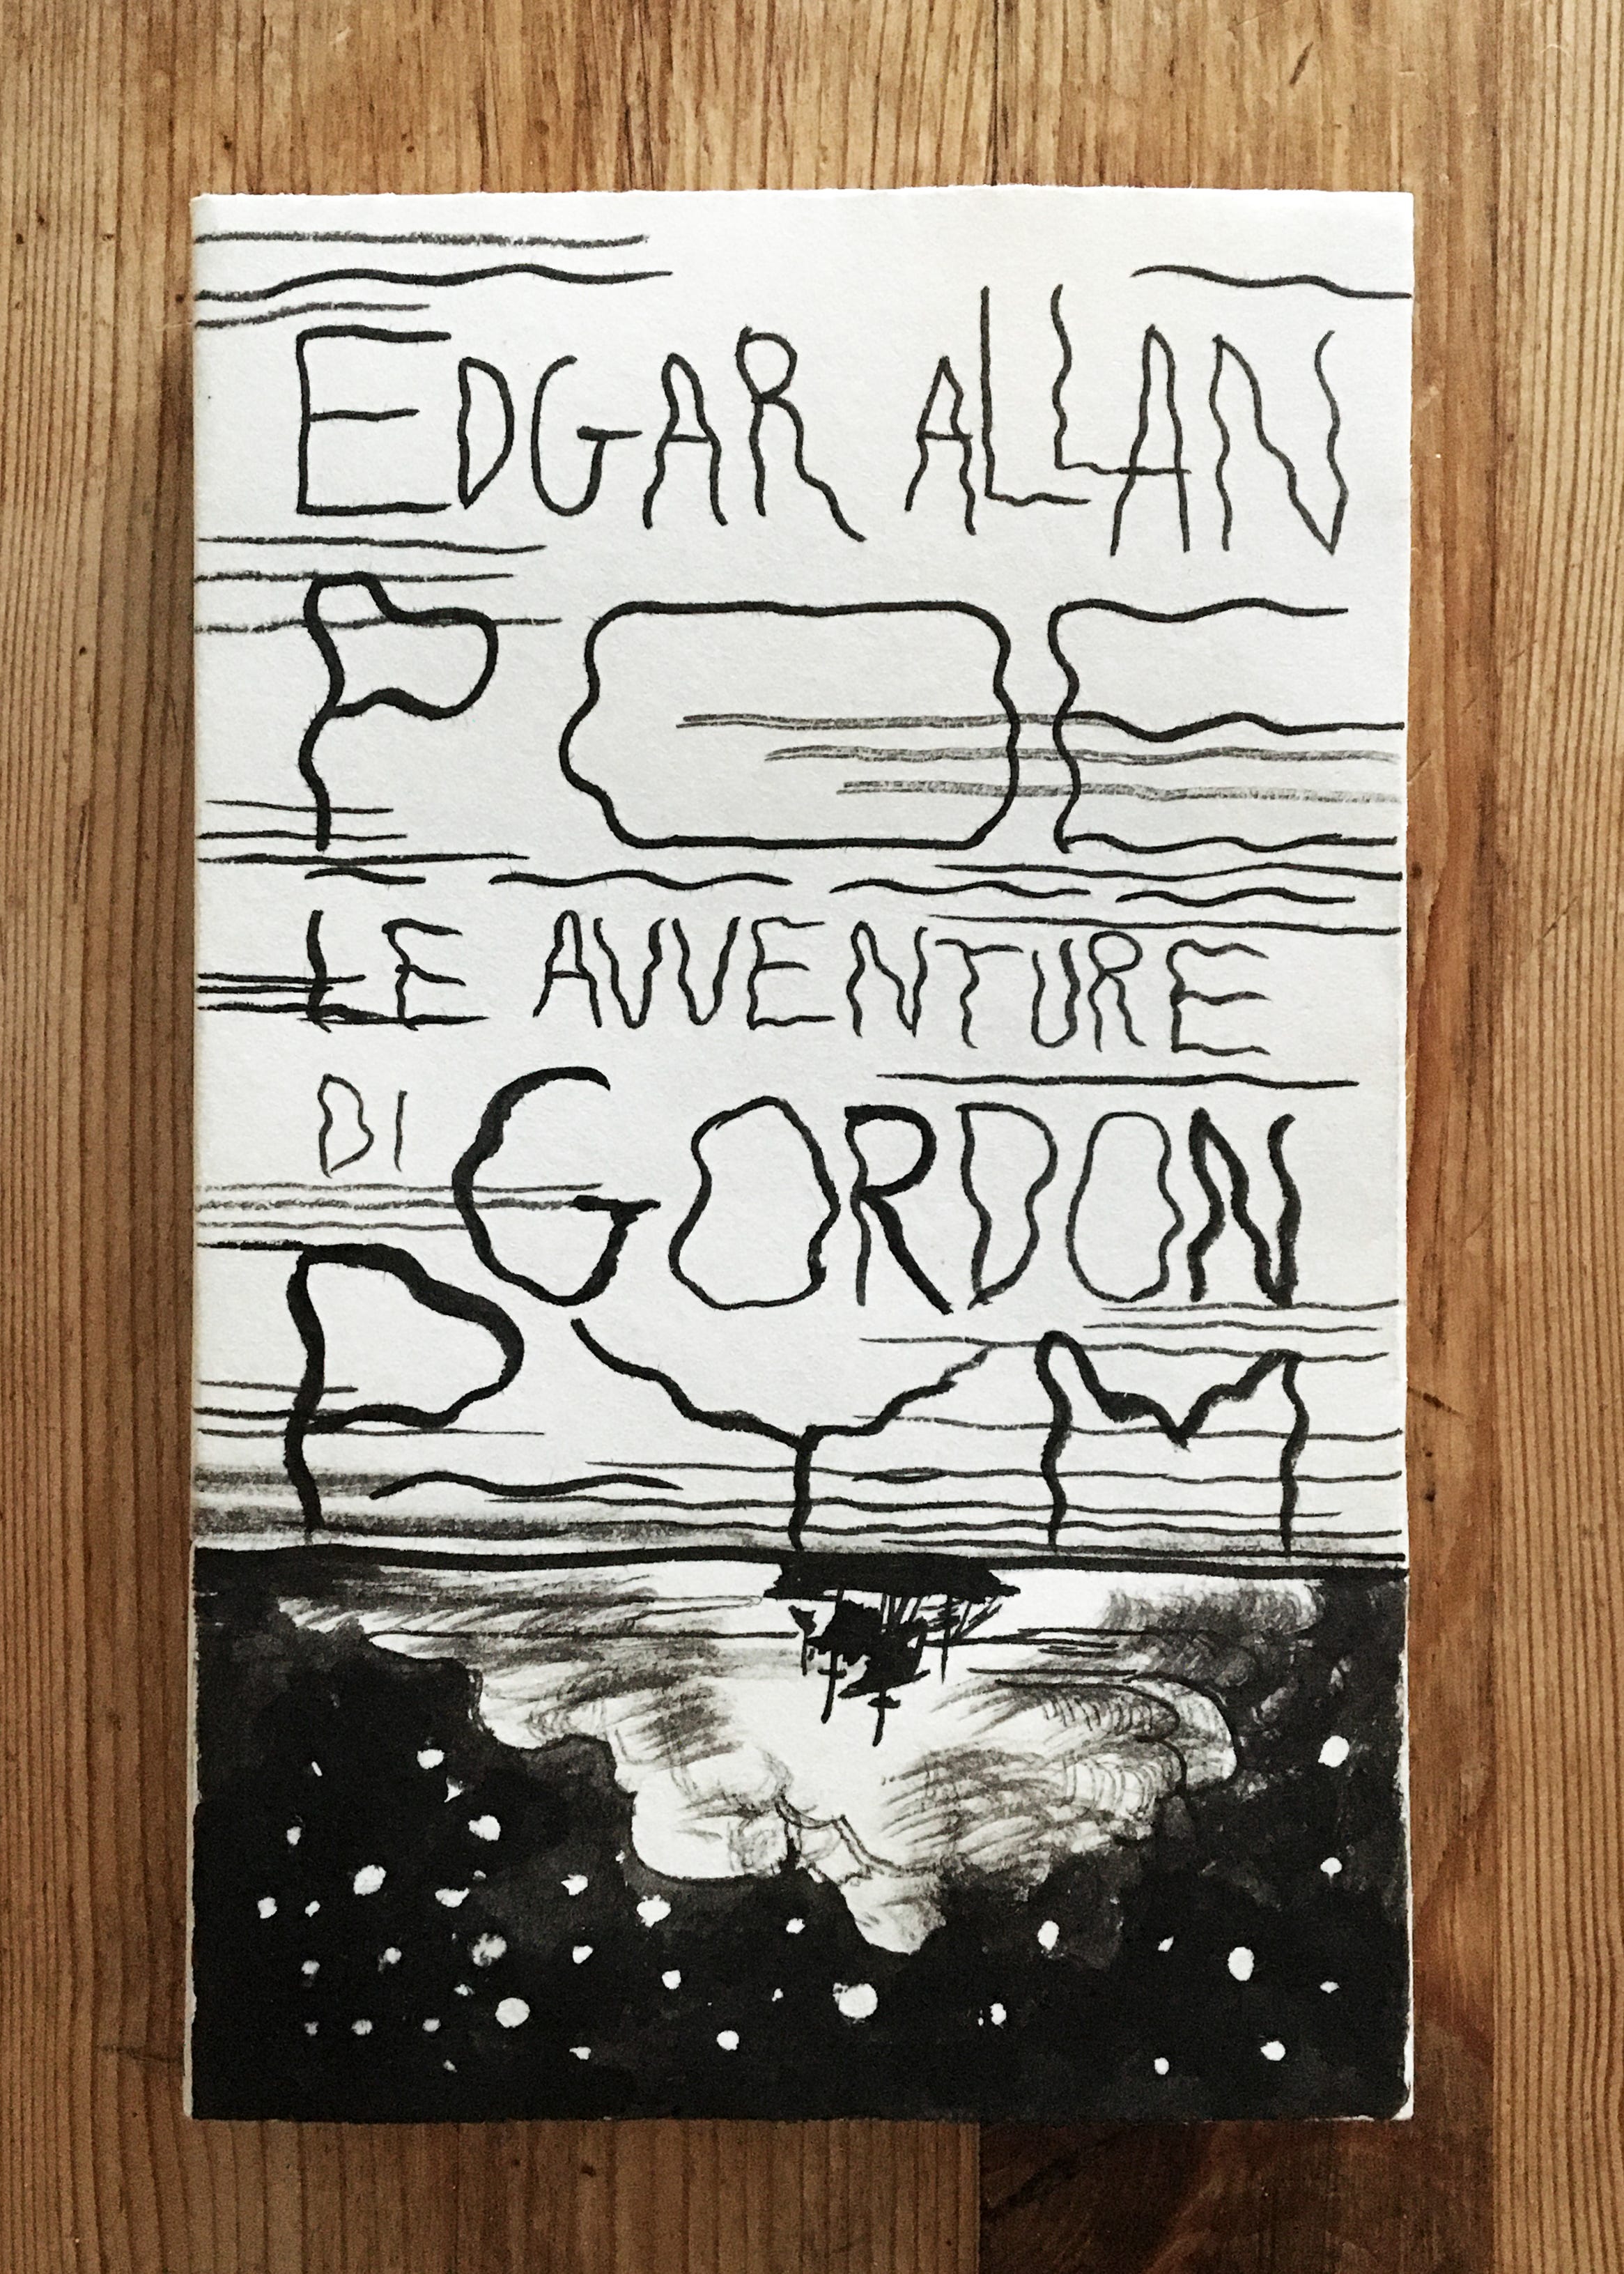 EDGAR ALLAN
POE
LE AVVENTURE
DI GORDON
PYM